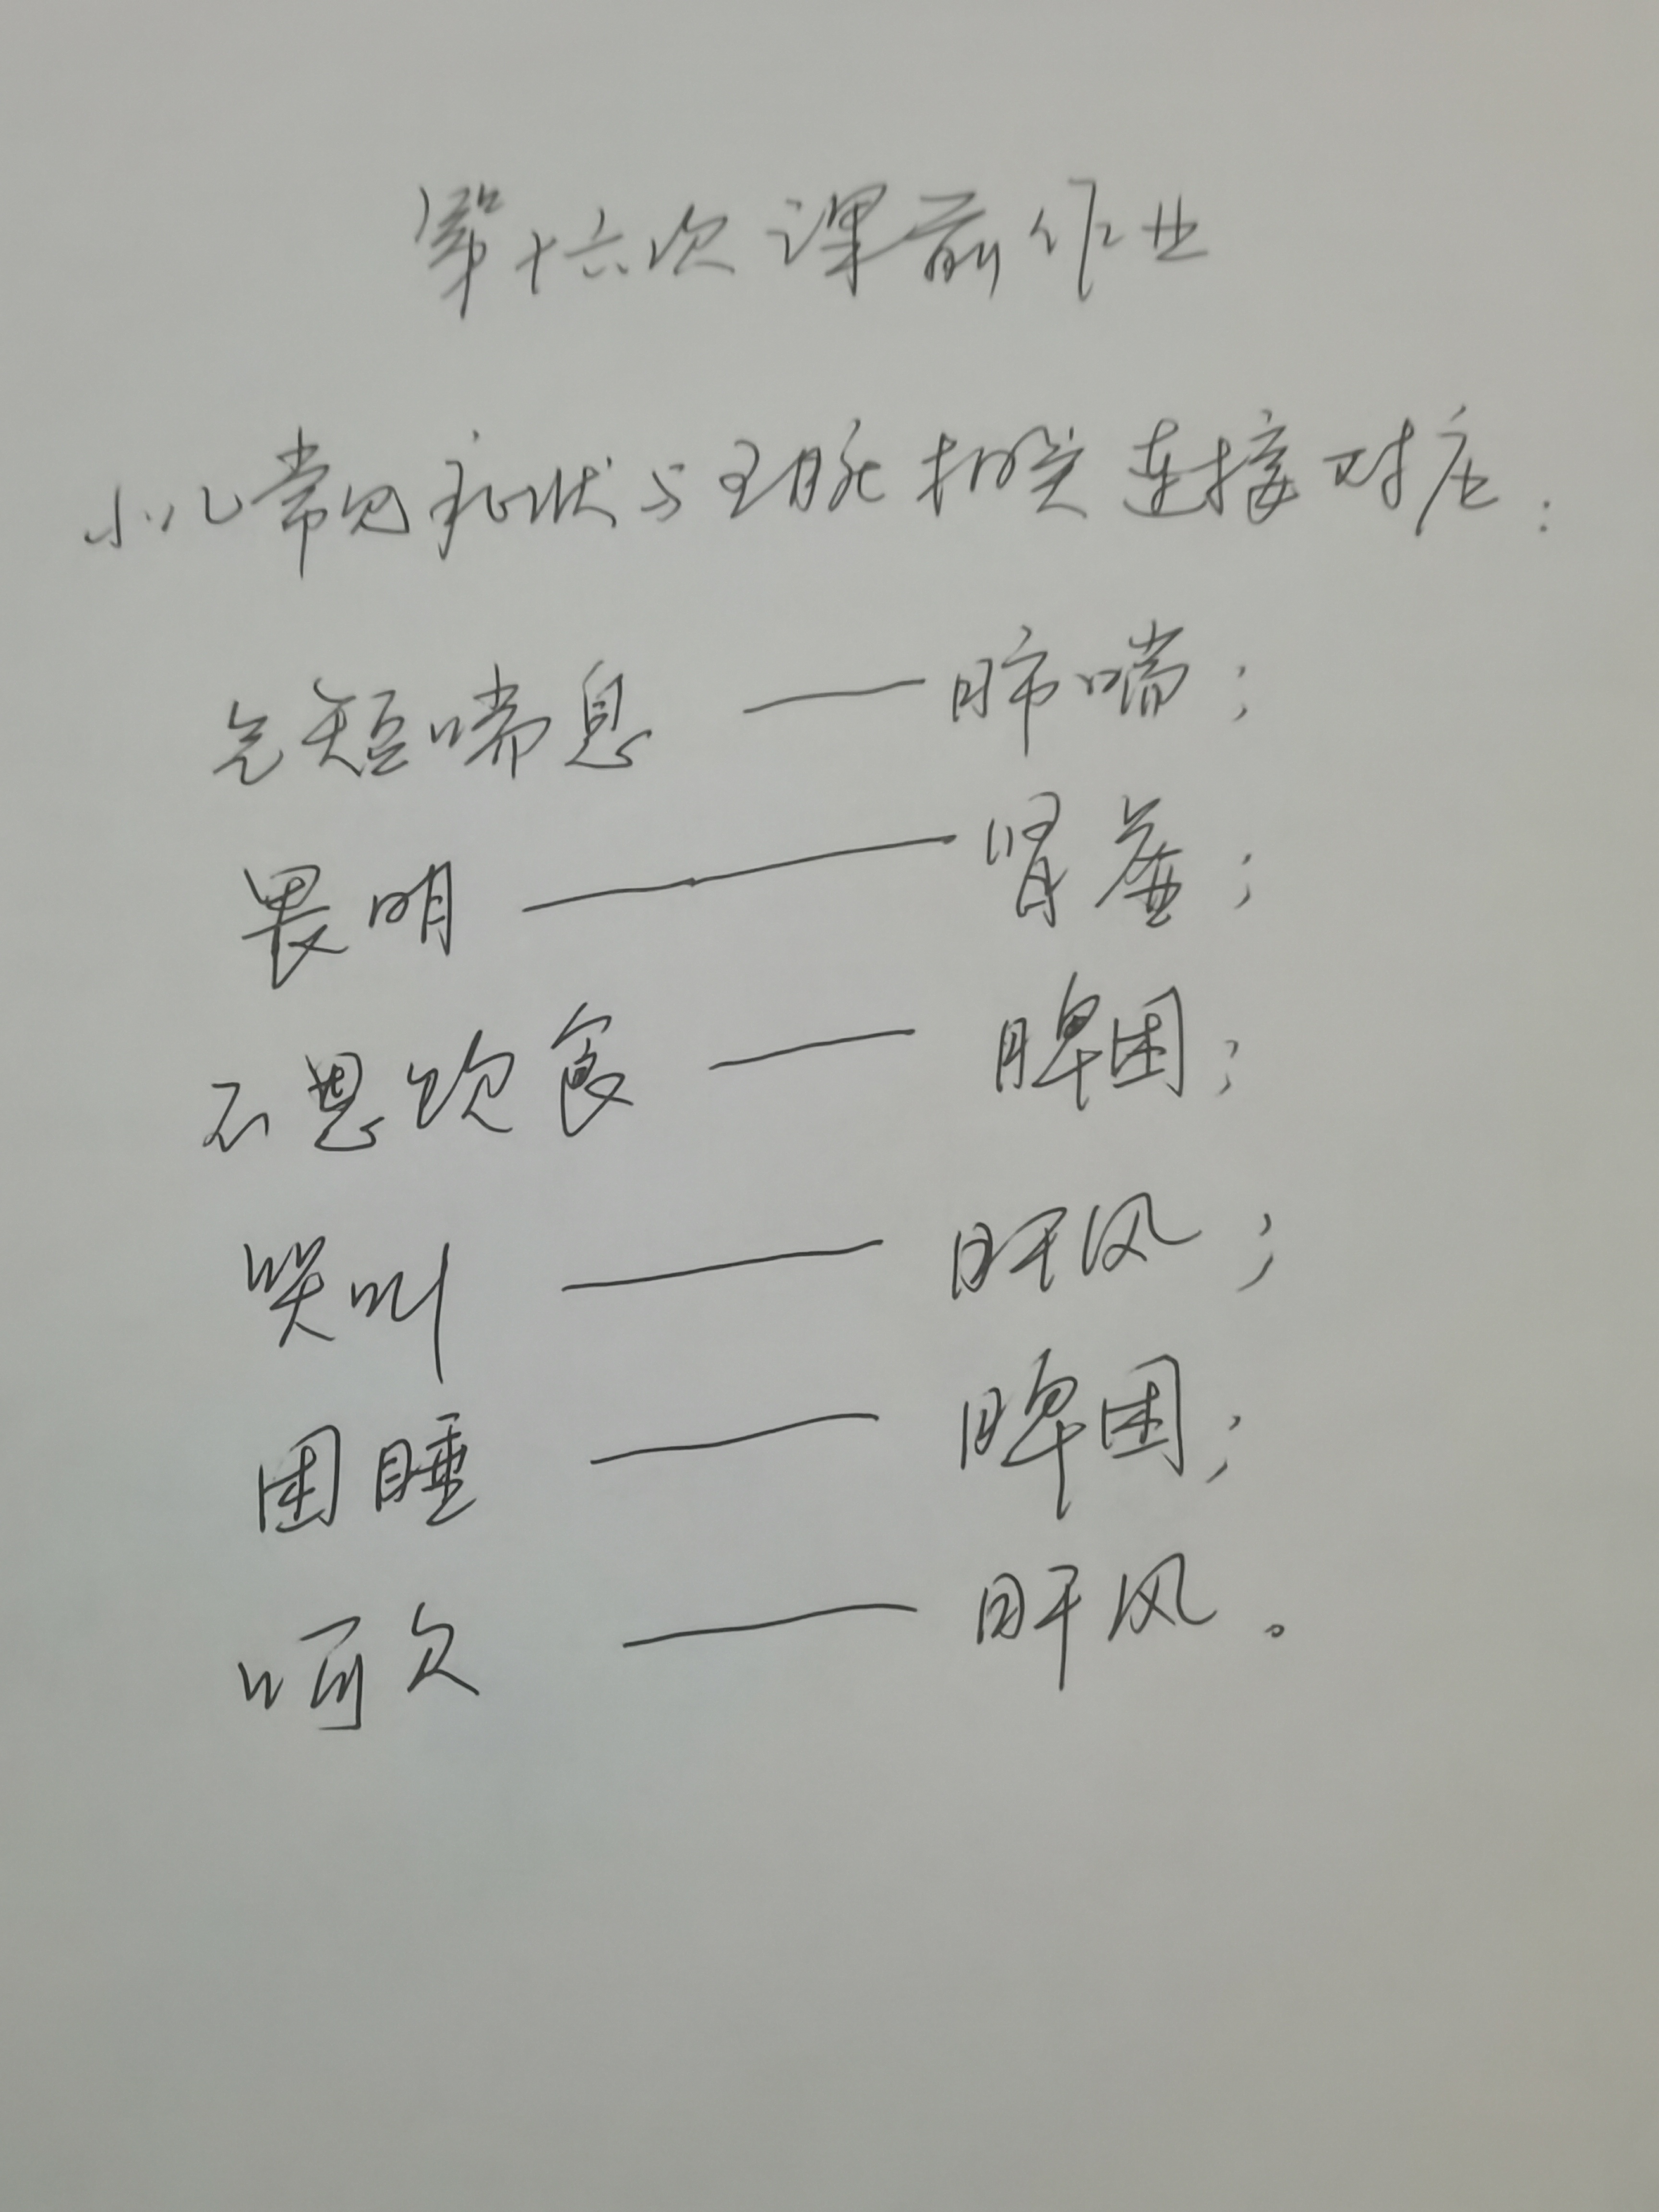 第十六次课前作业
小儿常见症状与五脏相关连接对应：
气短喘息——肺喘；
畏明——肾虚；
不思饮食——脾困；
哭叫——肝风；
困睡——脾困；
呵欠——肝风。